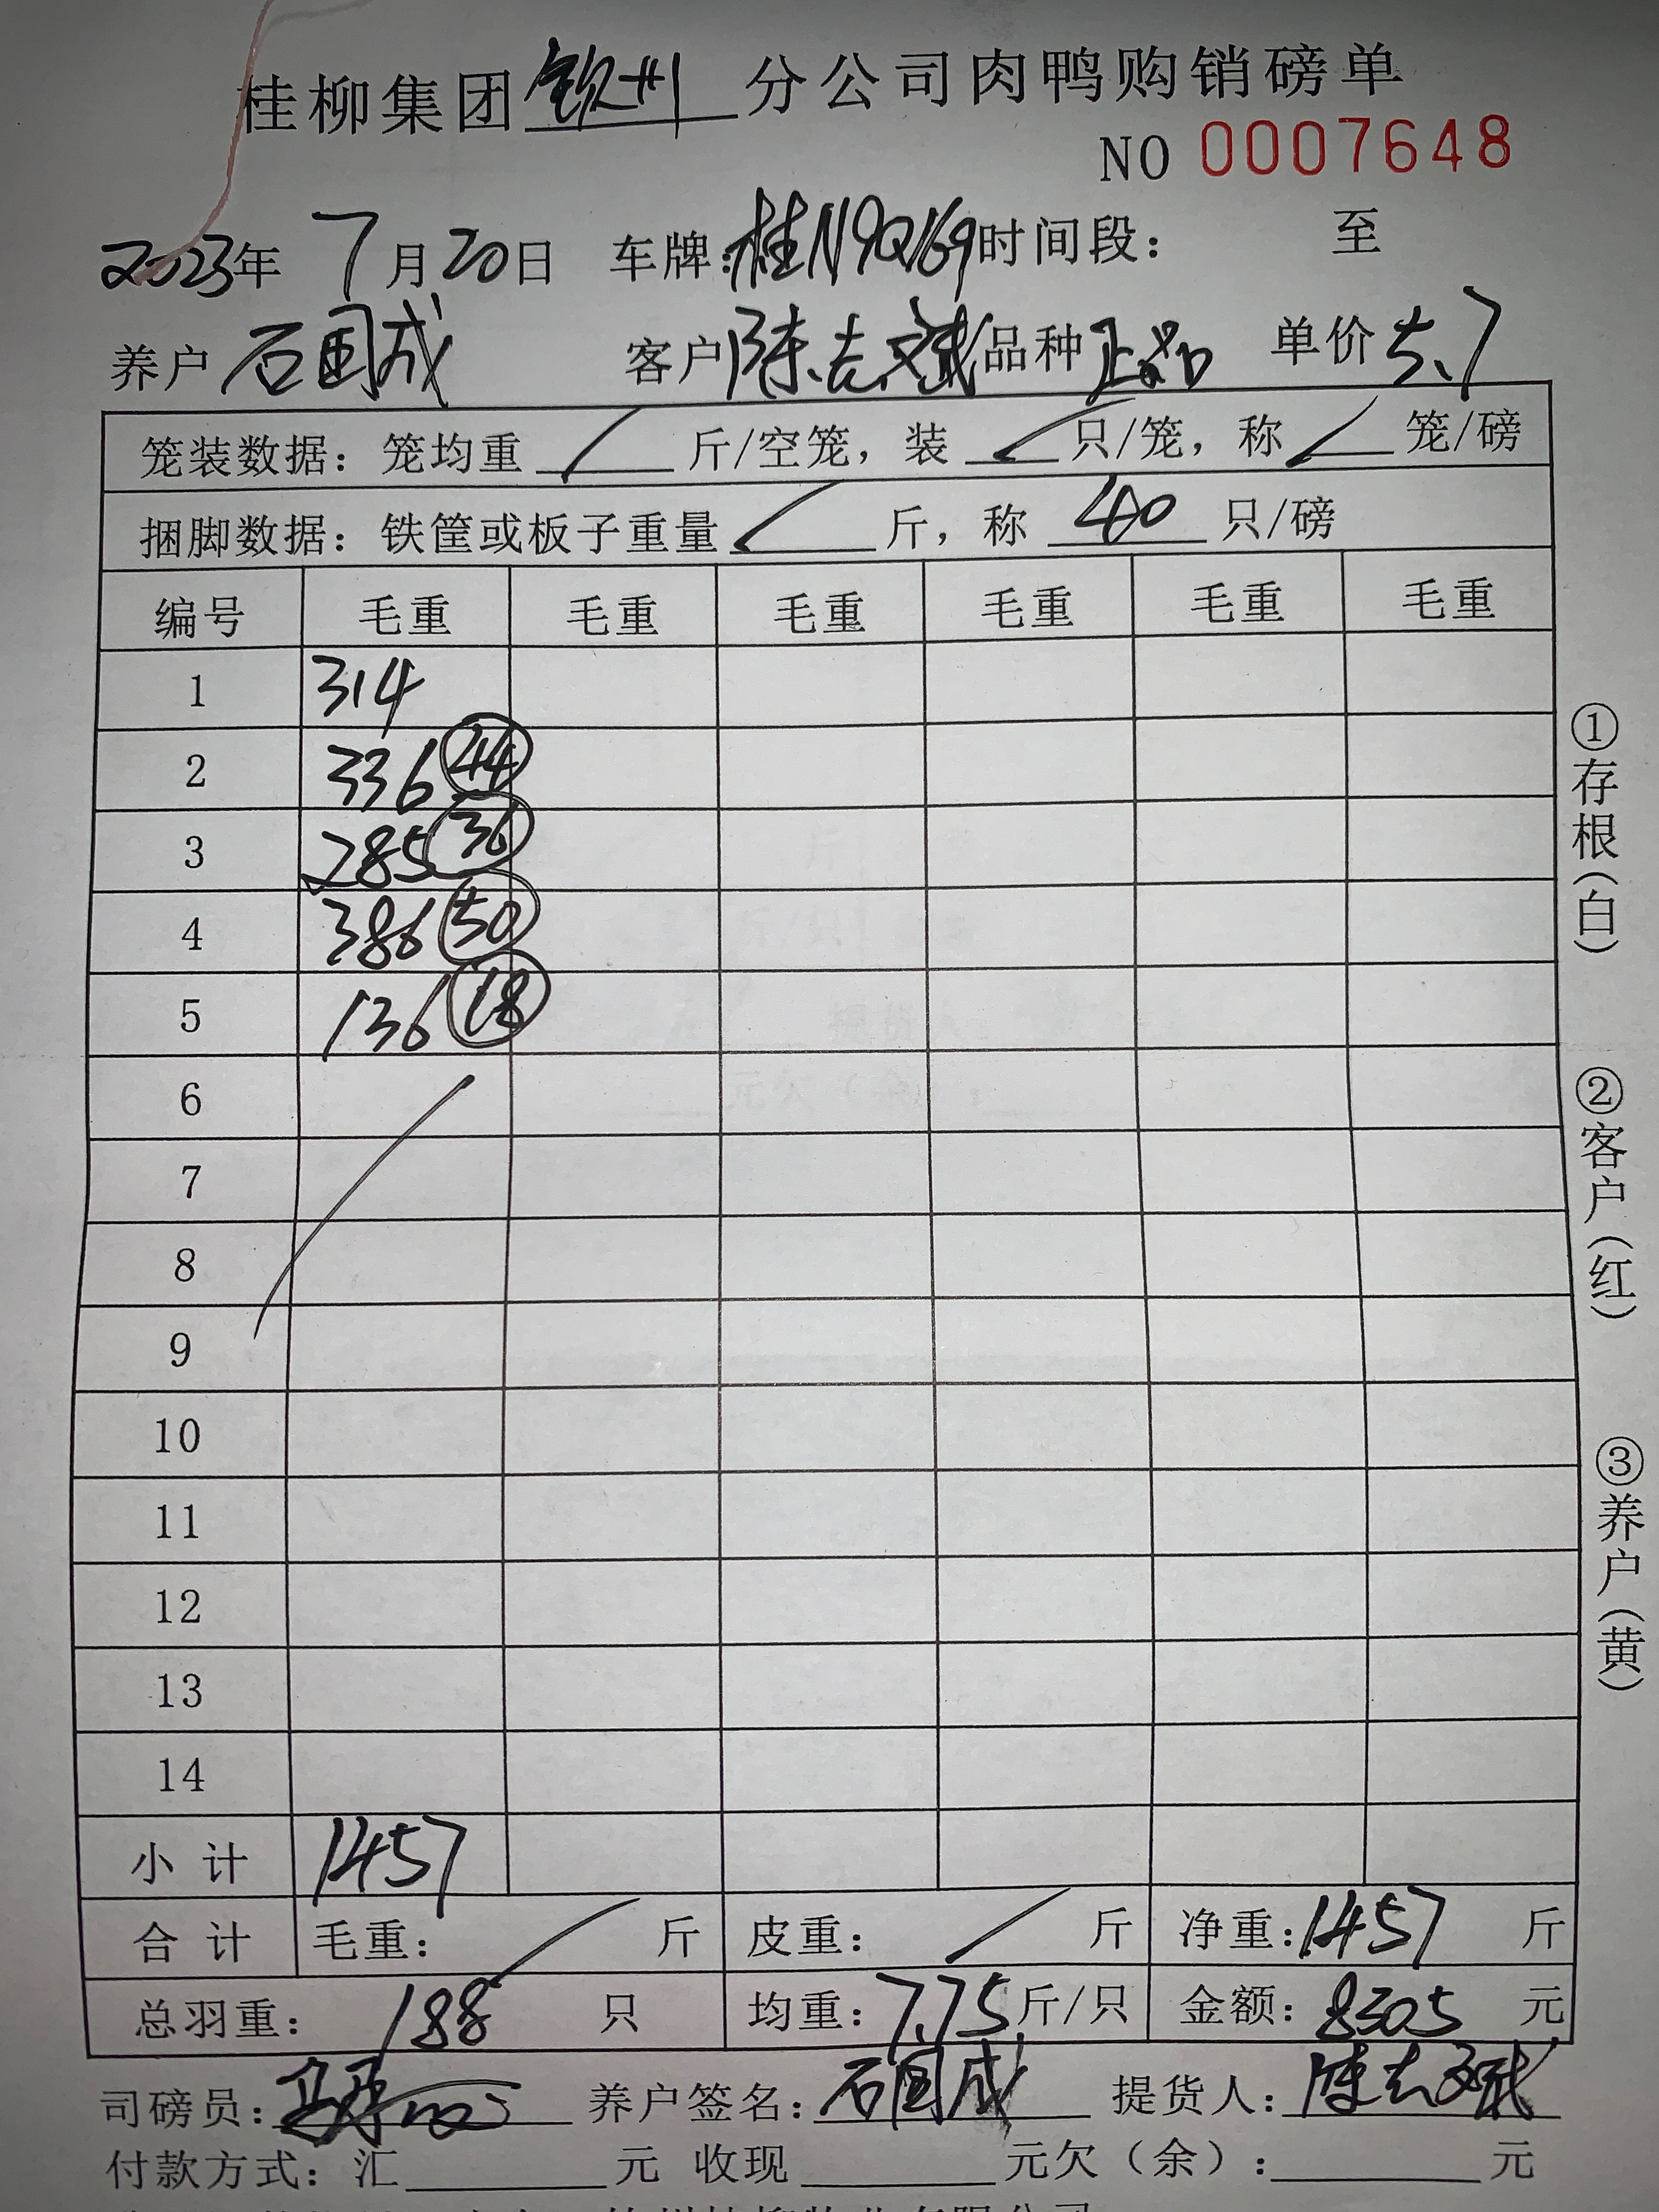 桂柳集团钦州分公司肉鸭购销磅单
NO 0007648
2023年 7月20日 车牌:桂N9Q169时间段: 至
养户 石国成 客户 陈志斌 品种 正品 单价 5.7
笼装数据: 笼均重 / 斤/空笼, 装 / 只/笼, 称 / 笼/磅
捆脚数据: 铁筐或板子重量 / 斤, 称 40 只/磅
编号 毛重 毛重 毛重 毛重 毛重 毛重
1 314
2 336 44
3 285 36
4 386 50
5 136 18
6
7
8
9
10
11
12
13
14
小计 1457
合计 毛重: / 斤 皮重: / 斤 净重:1457 斤
总羽重: 188 只 均重: 7.75斤/只 金额: 8305 元
司磅员: 养户签名: 石国成 提货人: 陈志斌
付款方式: 汇 元 收现 元欠(余): 元
①存根(白)
②客户(红)
③养户(黄)